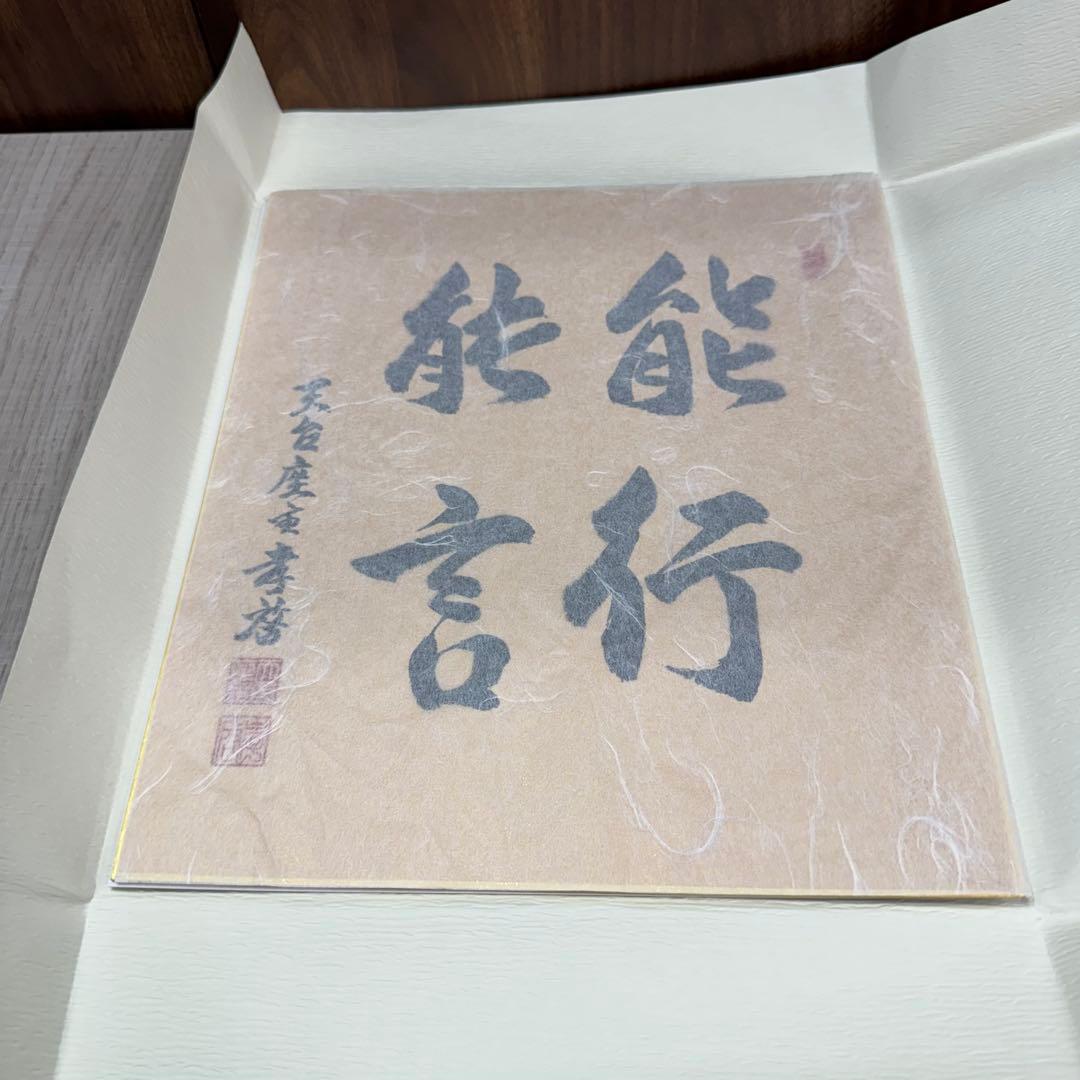 能行
能言
天台座主孝啓